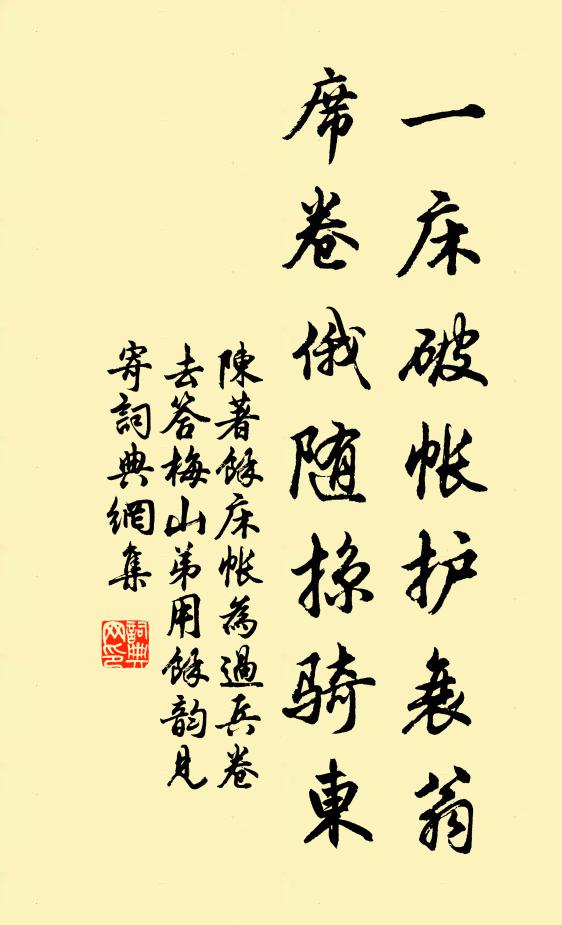 一床破帐护衰翁
席卷俄随掠骑東
陳著餘床帳為過兵卷
去答梅山弟用餘韵見
寄詞典網集
詞典网印